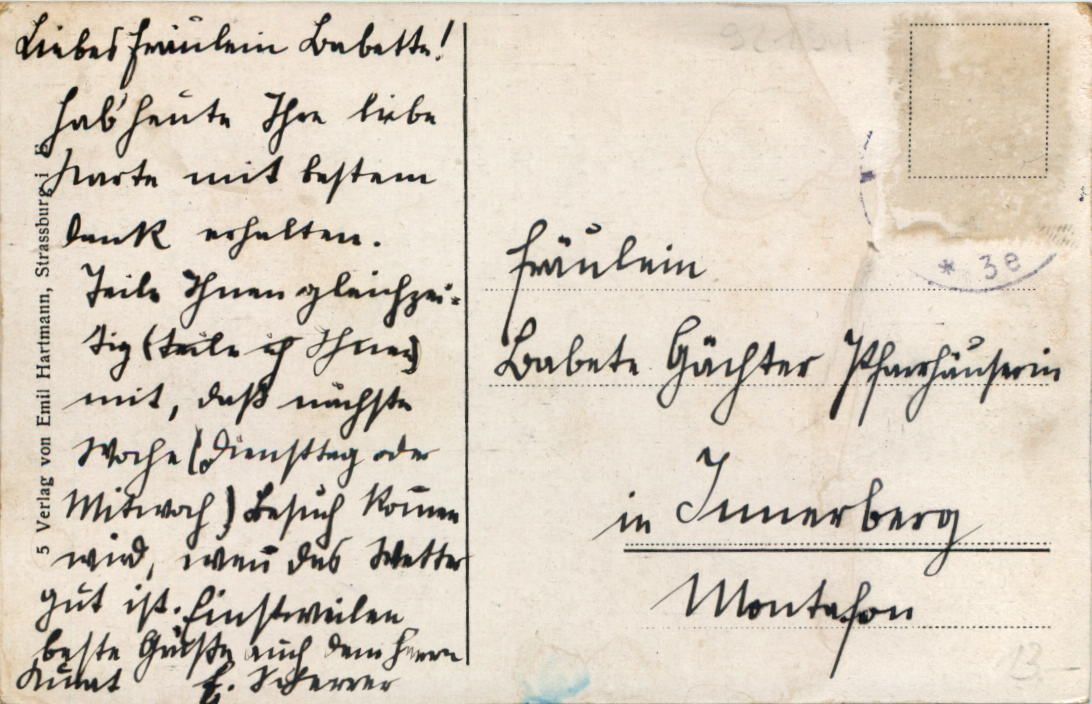 Liebes Fräulein Babette!
Hab' heute Ihre liebe
Karte mit bestem
Dank erhalten.
Teile Ihnen gleichzei-
tig (teile ich Ihnen)
mit, daß nächste
Woche (Diensttag oder
Mitwoch) Besuch kom̄en
wird, wen̄ das Wetter
gut ist. Einstweilen
beste Grüße auch dem Herrn
Kurat E. Scherrer
5 Verlag von Emil Hartmann, Strassburg i E
* 3e
Fräulein
Babete Gächter Pfarrhäuserin
in Innerberg
Montafon
13.-